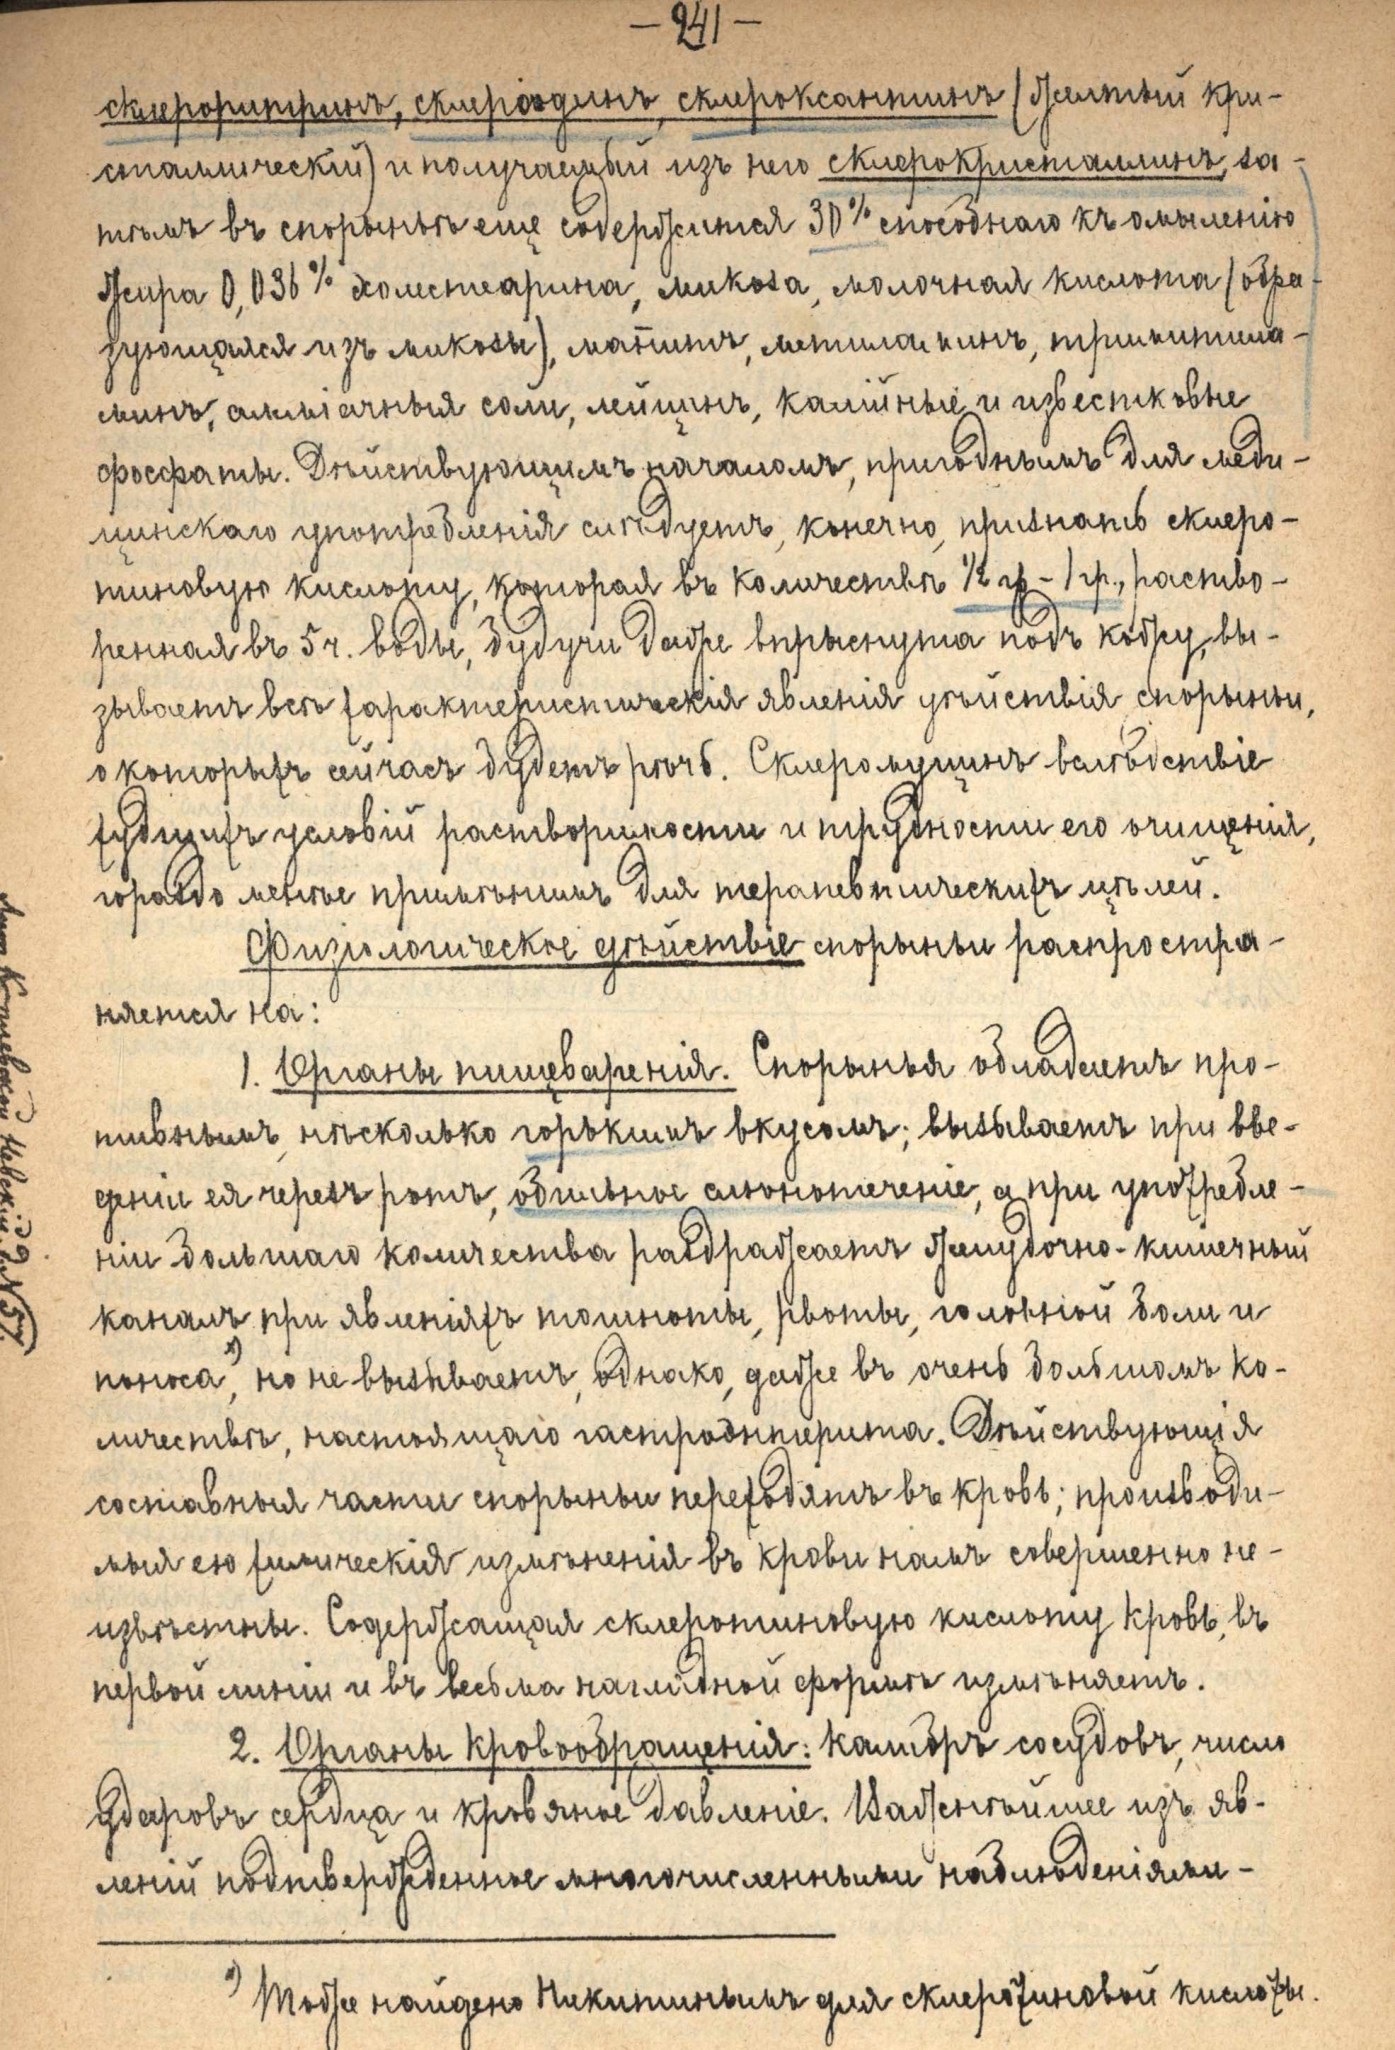 — 241 —
склероритринъ, склеріодинъ, склероксантинъ (желтый кри-
сталлическій) и получаемый изъ него склерокристаллинъ, за-
тѣмъ въ спорыньѣ еще содержится 30% способнаго къ омыленію
жира 0,036% холестеарина, микоза, молочная кислота (обра-
зующаяся изъ микозы), маннитъ, метиламинъ, триметила-
минъ, амміачныя соли, лейцинъ, калійные и известковые
фосфаты. Дѣйствующимъ началомъ, пригоднымъ для меди-
цинскаго употребленія слѣдуетъ, конечно, признать склеро-
тиновую кислоту, которая въ количествѣ ½ гр - 1 гр., раство-
ренная въ 5 ч. воды, будучи даже впрыснута подъ кожу, вы-
зываетъ всѣ характеристическія явленія дѣйствія спорыньи,
о которыхъ сейчасъ будетъ рѣчь. Склеромуцинъ вслѣдствіе
худшихъ условій растворимости и трудности его очищенія,
гораздо менѣе примѣнимъ для терапевтическихъ цѣлей.
Физіологическое дѣйствіе спорыньи распростра-
няется на:
1. Органы пищеваренія. Спорынья обладаетъ про-
тивнымъ, нѣсколько горькимъ вкусомъ; вызываетъ при вве-
деніи ея черезъ ротъ, обильное слюнотеченіе, а при употребле-
ніи большаго количества раздражаетъ желудочно-кишечный
каналъ при явленіяхъ тошноты, рвоты, головной боли и
поноса *), но не вызываетъ, однако, даже въ очень большомъ ко-
личествѣ, настоящаго гастроэнтерита. Дѣйствующія
составныя части спорыньи переходятъ въ кровь; производи-
мыя ею химическія измѣненія въ крови намъ совершенно не-
извѣстны. Содержащая склеротиновую кислоту кровь, въ
первой линіи и въ весьма наглядной формѣ измѣняетъ.
2. Органы кровообращенія: калибръ сосудовъ, число
ударовъ сердца и кровяное давленіе. Важнѣйшее изъ яв-
леній подтвержденное многочисленными наблюденіями-
*) Тоже найдено Никитинымъ для склеротиновой кислоты.
Невскій № 57